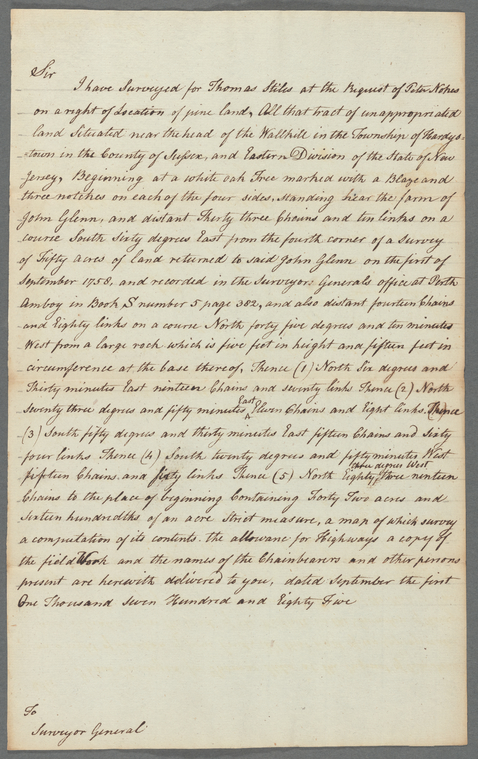 Sir
I have Surveyed for Thomas Stiles at the Request of Peter Nokes
on a right of Location of pine land, All that tract of unappropriated
land Situated near the head of the Wallkill in the Township of Hardys-
town in the County of Sussex, and Eastern Division of the State of New
Jersey, Beginning at a white oak Tree marked with a Blaze and
three notches on each of the four sides, standing near the farm of
John Glenn, and distant Thirty three Chains and ten links on a
course South Sixty degrees East from the fourth corner of a survey
of Fifty acres of land returned to said John Glenn on the first of
September 1758, and recorded in the Surveyor Generals office at Perth
Amboy in Book S number 5 page 382, and also distant fourteen Chains
and Eighty links on a course North forty five degrees and ten minutes
West from a large rock which is five feet in height and fifteen feet in
circumference at the base thereof, Thence (1) North Six degrees and
Thirty minutes East ninteen Chains and seventy links Thence (2) North
Seventy three degrees and fifty minutes East Eleven Chains and Eight links. Thence
(3) South fifty degrees and thirty minutes East fifteen Chains and Sixty
four links Thence (4) South twenty degrees and fifty minutes West
fifteen Chains and links Thence (5) North Eighty three degrees West three ninteen
Chains to the place of beginning Containing Forty Two acres and
Sixteen hundredths of an acre Strict measure, a map of which survey
a computation of its contents the allowance for Highways a copy of
the field Work and the names of the Chainbearers and other persons
present are herewith delivered to you, dated September the first
One Thousand Seven Hundred and Eighty Five
To
Surveyor General